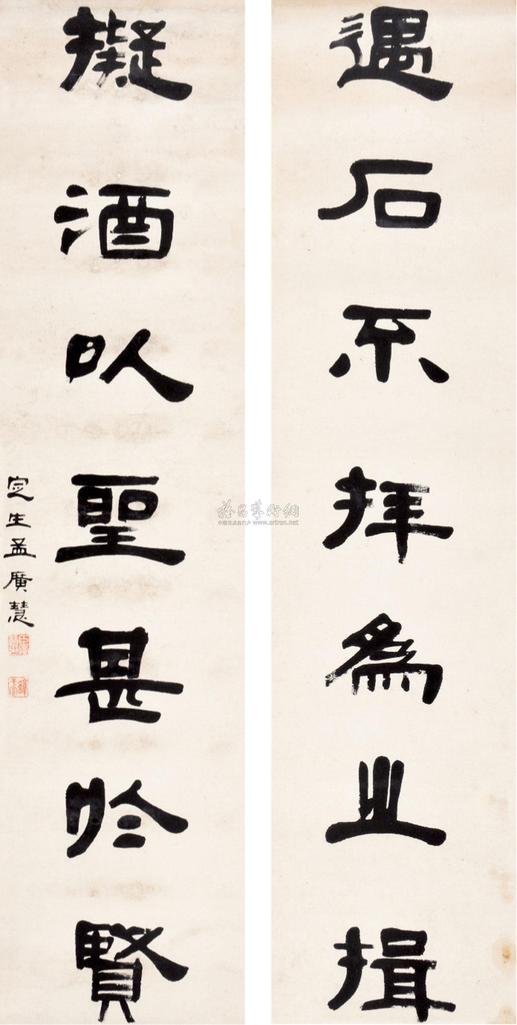 遇石不拜為之揖
擬酒以聖甚於賢
定生孟廣慧
雅昌藝術網
www.artron.net